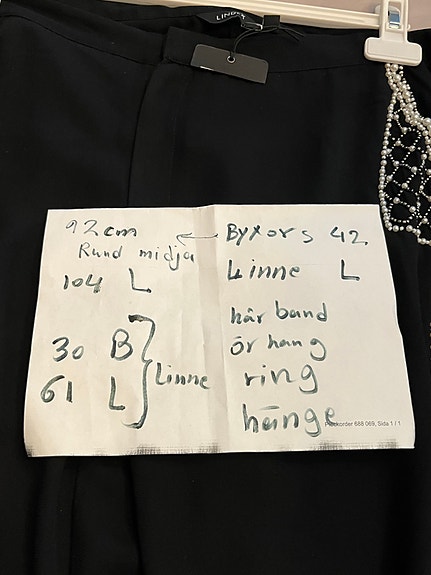 LINDEX
92cm
Rund midja
104 L
30 B
61 L
Linne
Byxors 42
Linne L
hår band
ör hang
ring
hänge
Plockorder 688 069, Sida 1 / 1